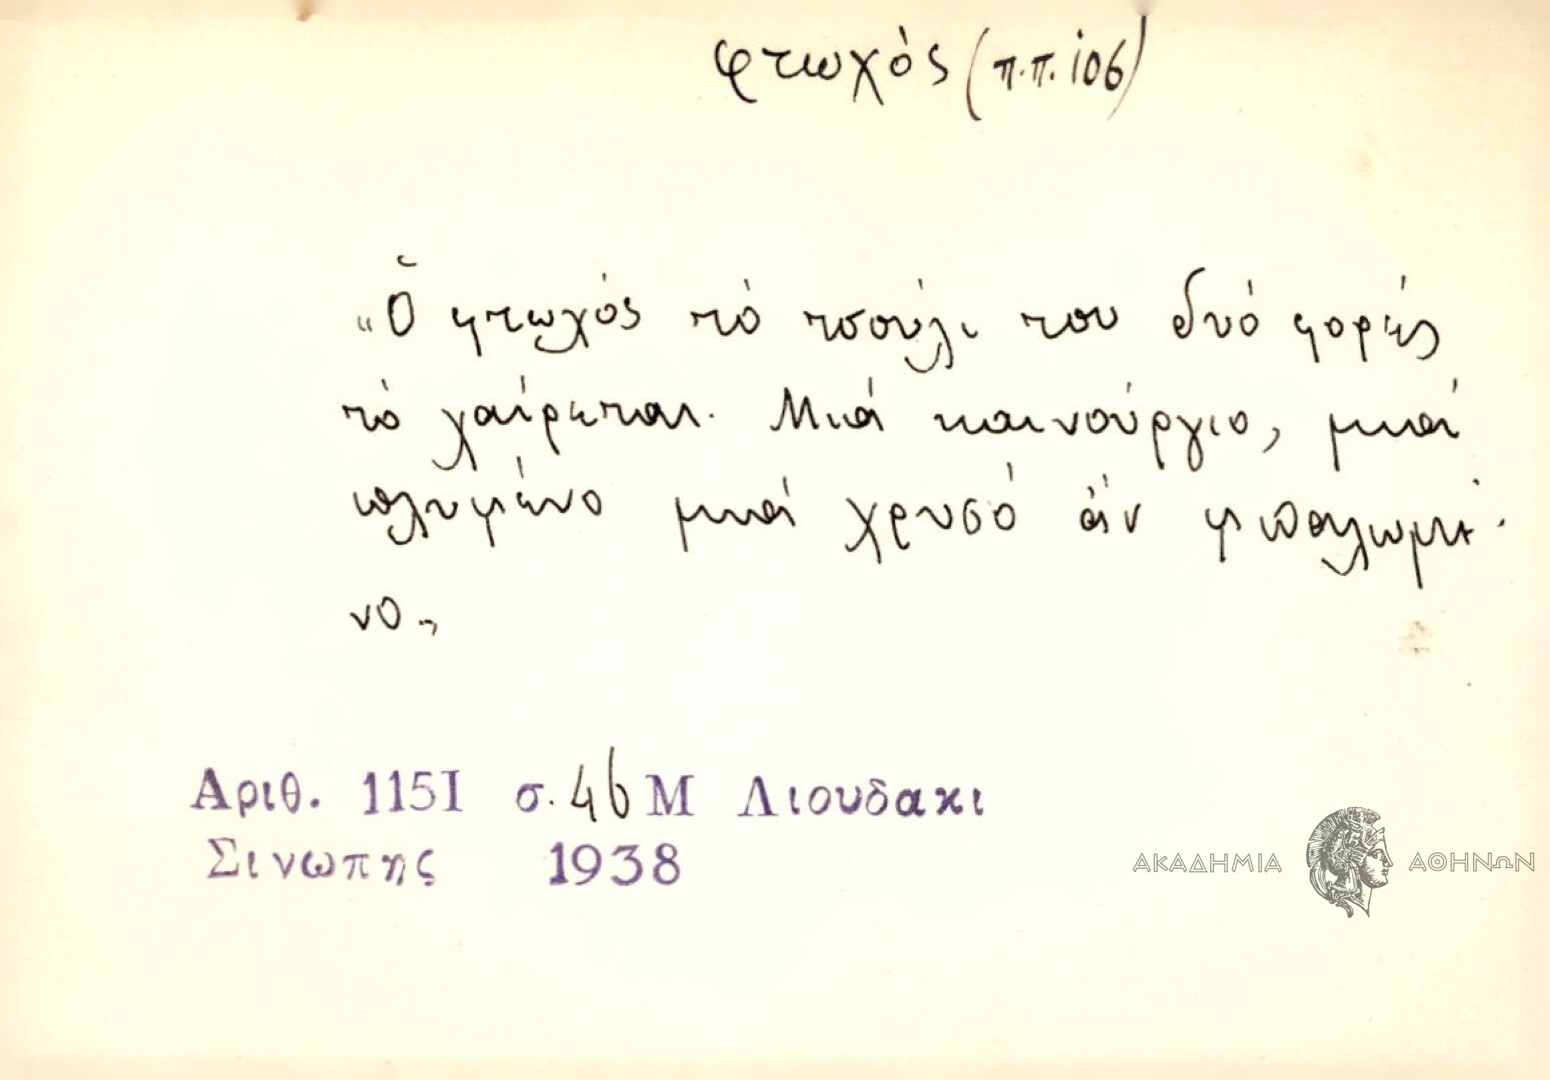 φτωχός (π.π. 106)
"Ὁ φτωχός τό τσούλι του δυό φορές
τό χαίρεται. Μιά καινούργιο, μιά
πλυμένο μιά χρυσό ἄν
νο.,,
Αριθ. 1151 σ. 46 Μ Λιουδακι
Σινωπης 1938
ΑΚΑΔΗΜΙΑ ΑΘΗΝΩΝ